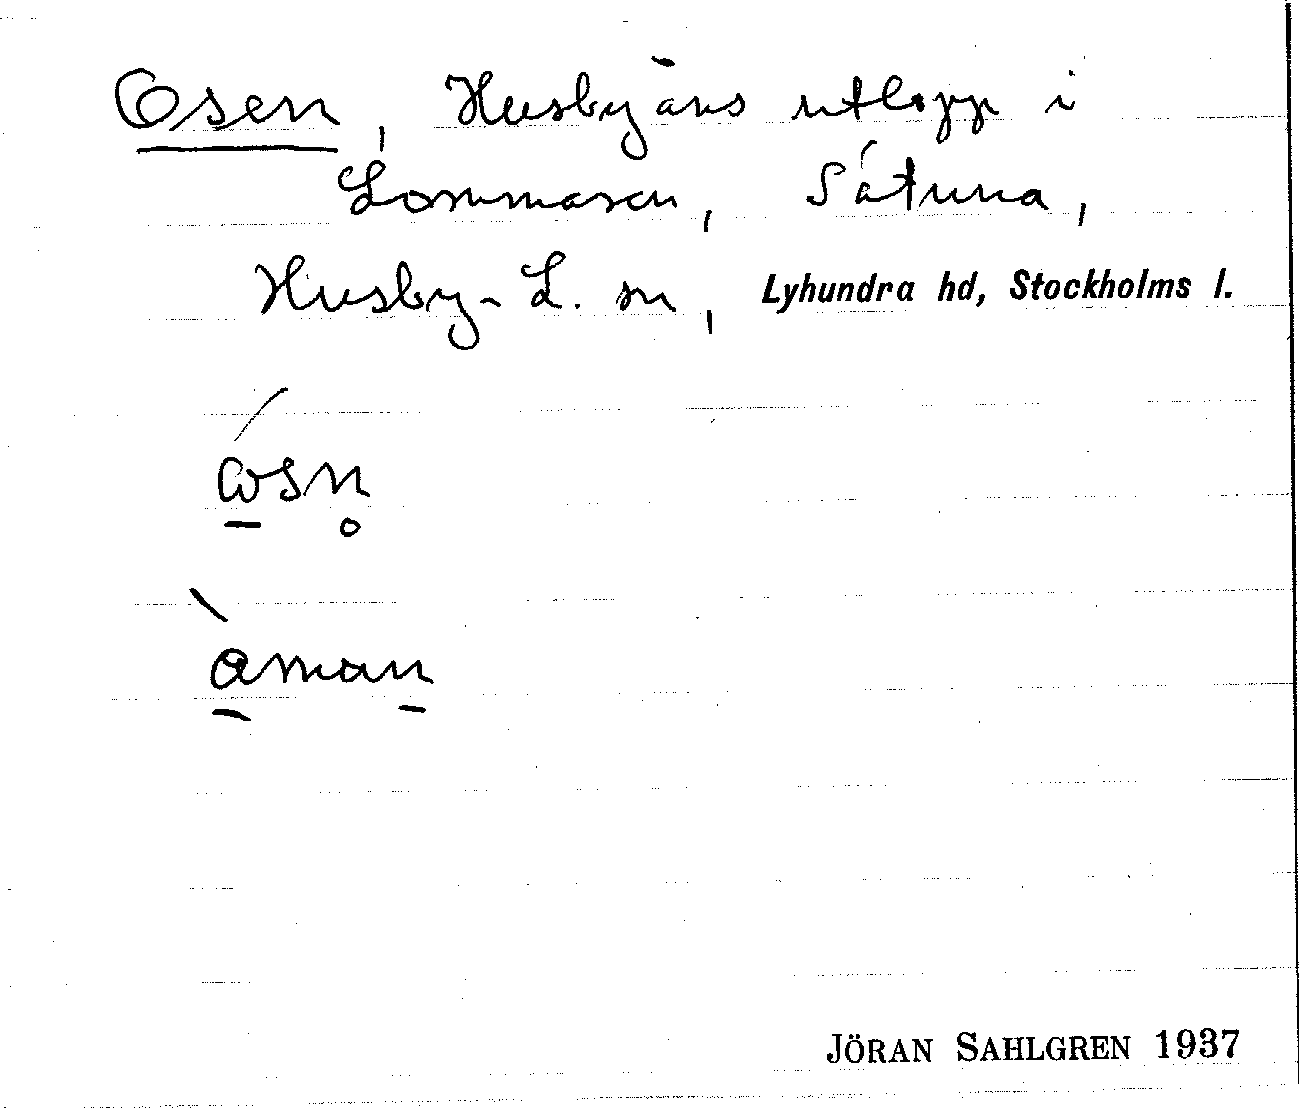 Osen, Husbyåns utlopp i
Lommaren, Såtuna,
Husby-L. sn, Lyhundra hd, Stockholms l.
ωsn̥
åman
JÖRAN SAHLGREN 1937